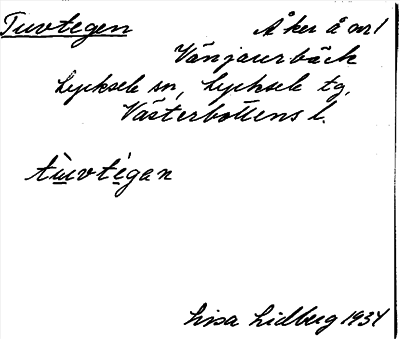 Tuvtegen Åker å nr 1
Vänjaurbäck
Lycksele sn, Lycksele tg.
Västerbottens l.
tùvtégan
Lisa Lidberg 1934